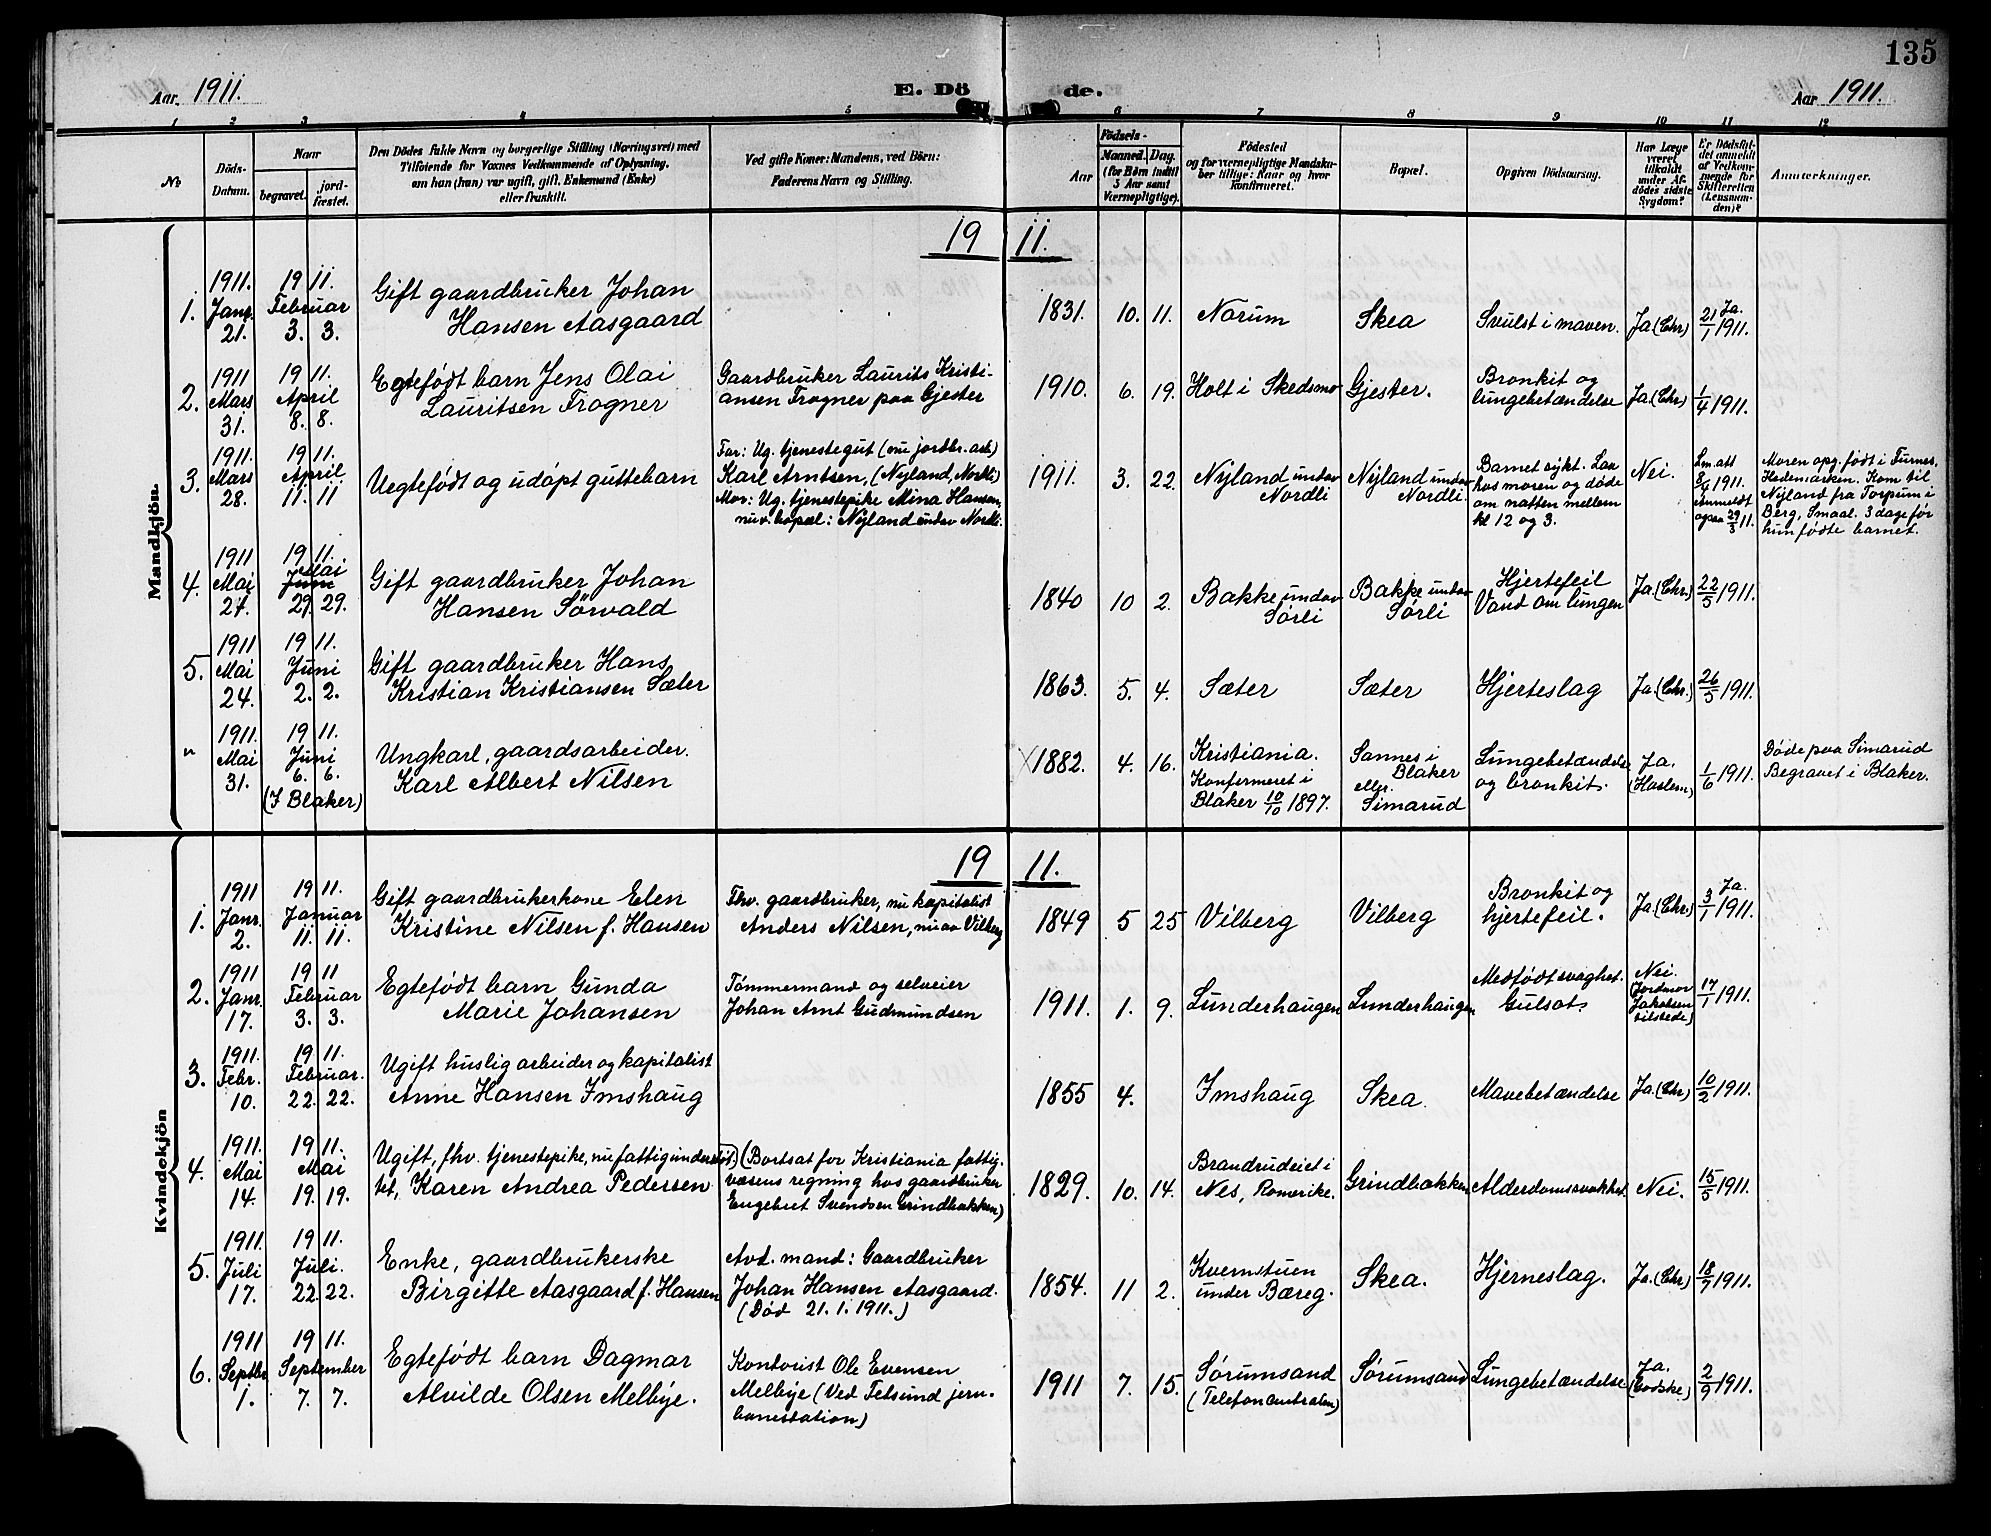 135
Aar 1911.
E. Dö
de.
Aar 1911.
1 2 3 4 5 6 7 8 9 10 11 12
No
Döds-
Datum.
Naar
begravet.
jord-
fæstet.
Den Dödes fulde Navn og borgerlige Stilling (Næringsvei) med
Tilföiende for Voxnes Vedkommende af Oplysning,
om han (hun) var ugift, gift, Enkemand (Enke)
eller fraskilt.
Ved gifte Koner: Mandens, ved Börn:
Faderens Navn og Stilling.
Födsels-
Aar
Maaned.
(for Börn indtil
3 Aar samt
Værnepligtige).
Dag.
Födested
og for værnepligtige Mandska-
ber tillige: Naar og hvor
konfirmeret.
Bopæl.
Opgiven Dödsaarsag.
Har Læge
været
tilkaldt
under Af-
dödes sidste
Sygdom?
Er Dödsfal-
det anmeldt
af Vedkom-
mende for
Skifteretten
(Lensman-
den)?
Anmærkninger.
Mandkjön.
19 11.
1.
1911.
Janr.
21.
19 11.
Februar
3. 3.
Gift gaardbruker Johan
Hansen Aasgaard
1831. 10. 11.
Norum
Skea
Svulst i maven.
Ja (Chr)
Ja.
21/1 1911.
2.
1911
Mars
31.
19 11.
April
8. 8.
Egtefødt barn Jens Olai
Lauritsen Frogner
Gaardbruker Laurits Kristi-
ansen Frogner paa Gjester
1910. 6. 19.
Holt i Skedsmo
Gjester.
Bronkit og
lungebetændelse
Ja. (Chr)
1/4 1911.
3.
1911.
Mars
28.
19 11.
April
11. 11
Uegtefødt og udøpt guttebarn
Far: Ug. tjenestegut (nu jordbr. arb)
Karl Arntsen, (Nyland, Nordli)
Mor: Ug. tjenestepike Mina Hansen,
nuv. bopæl: Nyland under Nordli.
1911. 3. 22.
Nyland under
Nordli
Nyland under
Nordli.
Barnet sykt. Laa
hos moren og døde
om natten mellem
kl 12 og 3.
Nei.
Lm. att
8/4 1911.
anmeldt
ogsaa 29/3 11.
Moren opg. født i Furnes,
Hedemarken. Kom til
Nyland fra Torpum i
Berg, Smaal. 3 dage før
hun fødte barnet.
4.
1911
Mai
27.
19 11.
Mai
Juni
29. 29.
Gift gaardbruker Johan
Hansen Sørvald
1840 10 2.
Bakke under
Sørli
Bakke under
Sørli
Hjertefeil
Vand om lungen
Ja. (Chr.)
22/5 1911.
5.
1911
Mai
24.
19 11.
Juni
2. 2.
Gift gaardbruker Hans
Kristian Kristiansen Sæter
1863. 5. 4.
Sæter
Sæter
Hjerteslag
Ja. (Chr.)
26/5 1911.
"
1911.
Mai
31.
19 11.
Juni
6. 6.
(I Blaker)
Ungkarl, gaardsarbeider.
Karl Albert Nilsen
X 1882. 4. 16.
Kristiania.
Konfirmeret i
Blaker 10/10 1897.
Sannes i
Blaker
eller
Simarud
Lungebetændelse
og bronkit.
Ja.
(Haslem)
1/6 1911.
Døde paa Simarud
Begravet i Blaker.
Kvindekjön
19 11.
1.
1911
Janr.
2.
19 11.
Januar
11. 11.
Gift gaardbrukerkone Elen
Kristine Nilsen f. Hansen
Fhv. gaardbruker, nu kapitalist
Anders Nilsen, nu av Vilberg
1849 5 25
Vilberg
Vilberg
Bronkit og
hjertefeil.
Ja. (Chr)
Ja.
3/1 1911.
2.
1911
Janr.
17.
19 11
Februar
3. 3.
Egtefødt barn Gunda
Marie Johansen
Tømmermand og selveier
Johan Arnt Gudmundsen
1911. 1. 9.
Lunderhaugen
Lunderhaugen
Medfødt svaghet.
Gulsot.
Nei.
(Jordmor
Jakobsen
tilstede)
17/1 1911.
3.
1911.
Febr.
10.
19 11.
Februar.
22. 22.
Ugift huslig arbeider og kapitalist
Anne Hansen Imshaug
1855 4.
Imshaug
Skea.
Mavebetændelse
Ja. (Chr)
10/2 1911.
4.
1911.
Mai
14.
19 11.
Mai
19. 19.
Ugift, fhv. tjenestepike, nu fattigunderstøt-
tet, Karen Andrea Pedersen
(Bortsat for Kristiania fattig-
væsens regning hos gaardbruker
Engebret Svendsen Grindbakken)
1829. 10. 14.
Brandrudeiet i
Nes, Romerike.
Grindbakken
Alderdomssvakhet
Nei.
15/5 1911.
5.
1911.
Juli
17.
19 11.
Juli.
22. 22.
Enke, gaardbrukerske
Birgitte Aasgaard f. Hansen
Avd. mand: Gaardbruker
Johan Hansen Aasgaard.
(Død 21.1.1911.)
1854. 11 2.
Kvernstuen
under Bæreg.
Skea.
Hjerneslag.
Ja (Chr)
18/7 1911.
6.
1911
Septbr
1.
19 11.
September
7. 7.
Egtefødt barn Dagmar
Alvilde Olsen Melbye.
Kontorist Ole Evensen
Melbye (Ved Fetsund jern-
banestation)
1911 7. 15.
Sørumsand
(Telefoncentralen)
Sørumsand
Lungebetændelse
Ja.
(Godske)
2/9 1911.